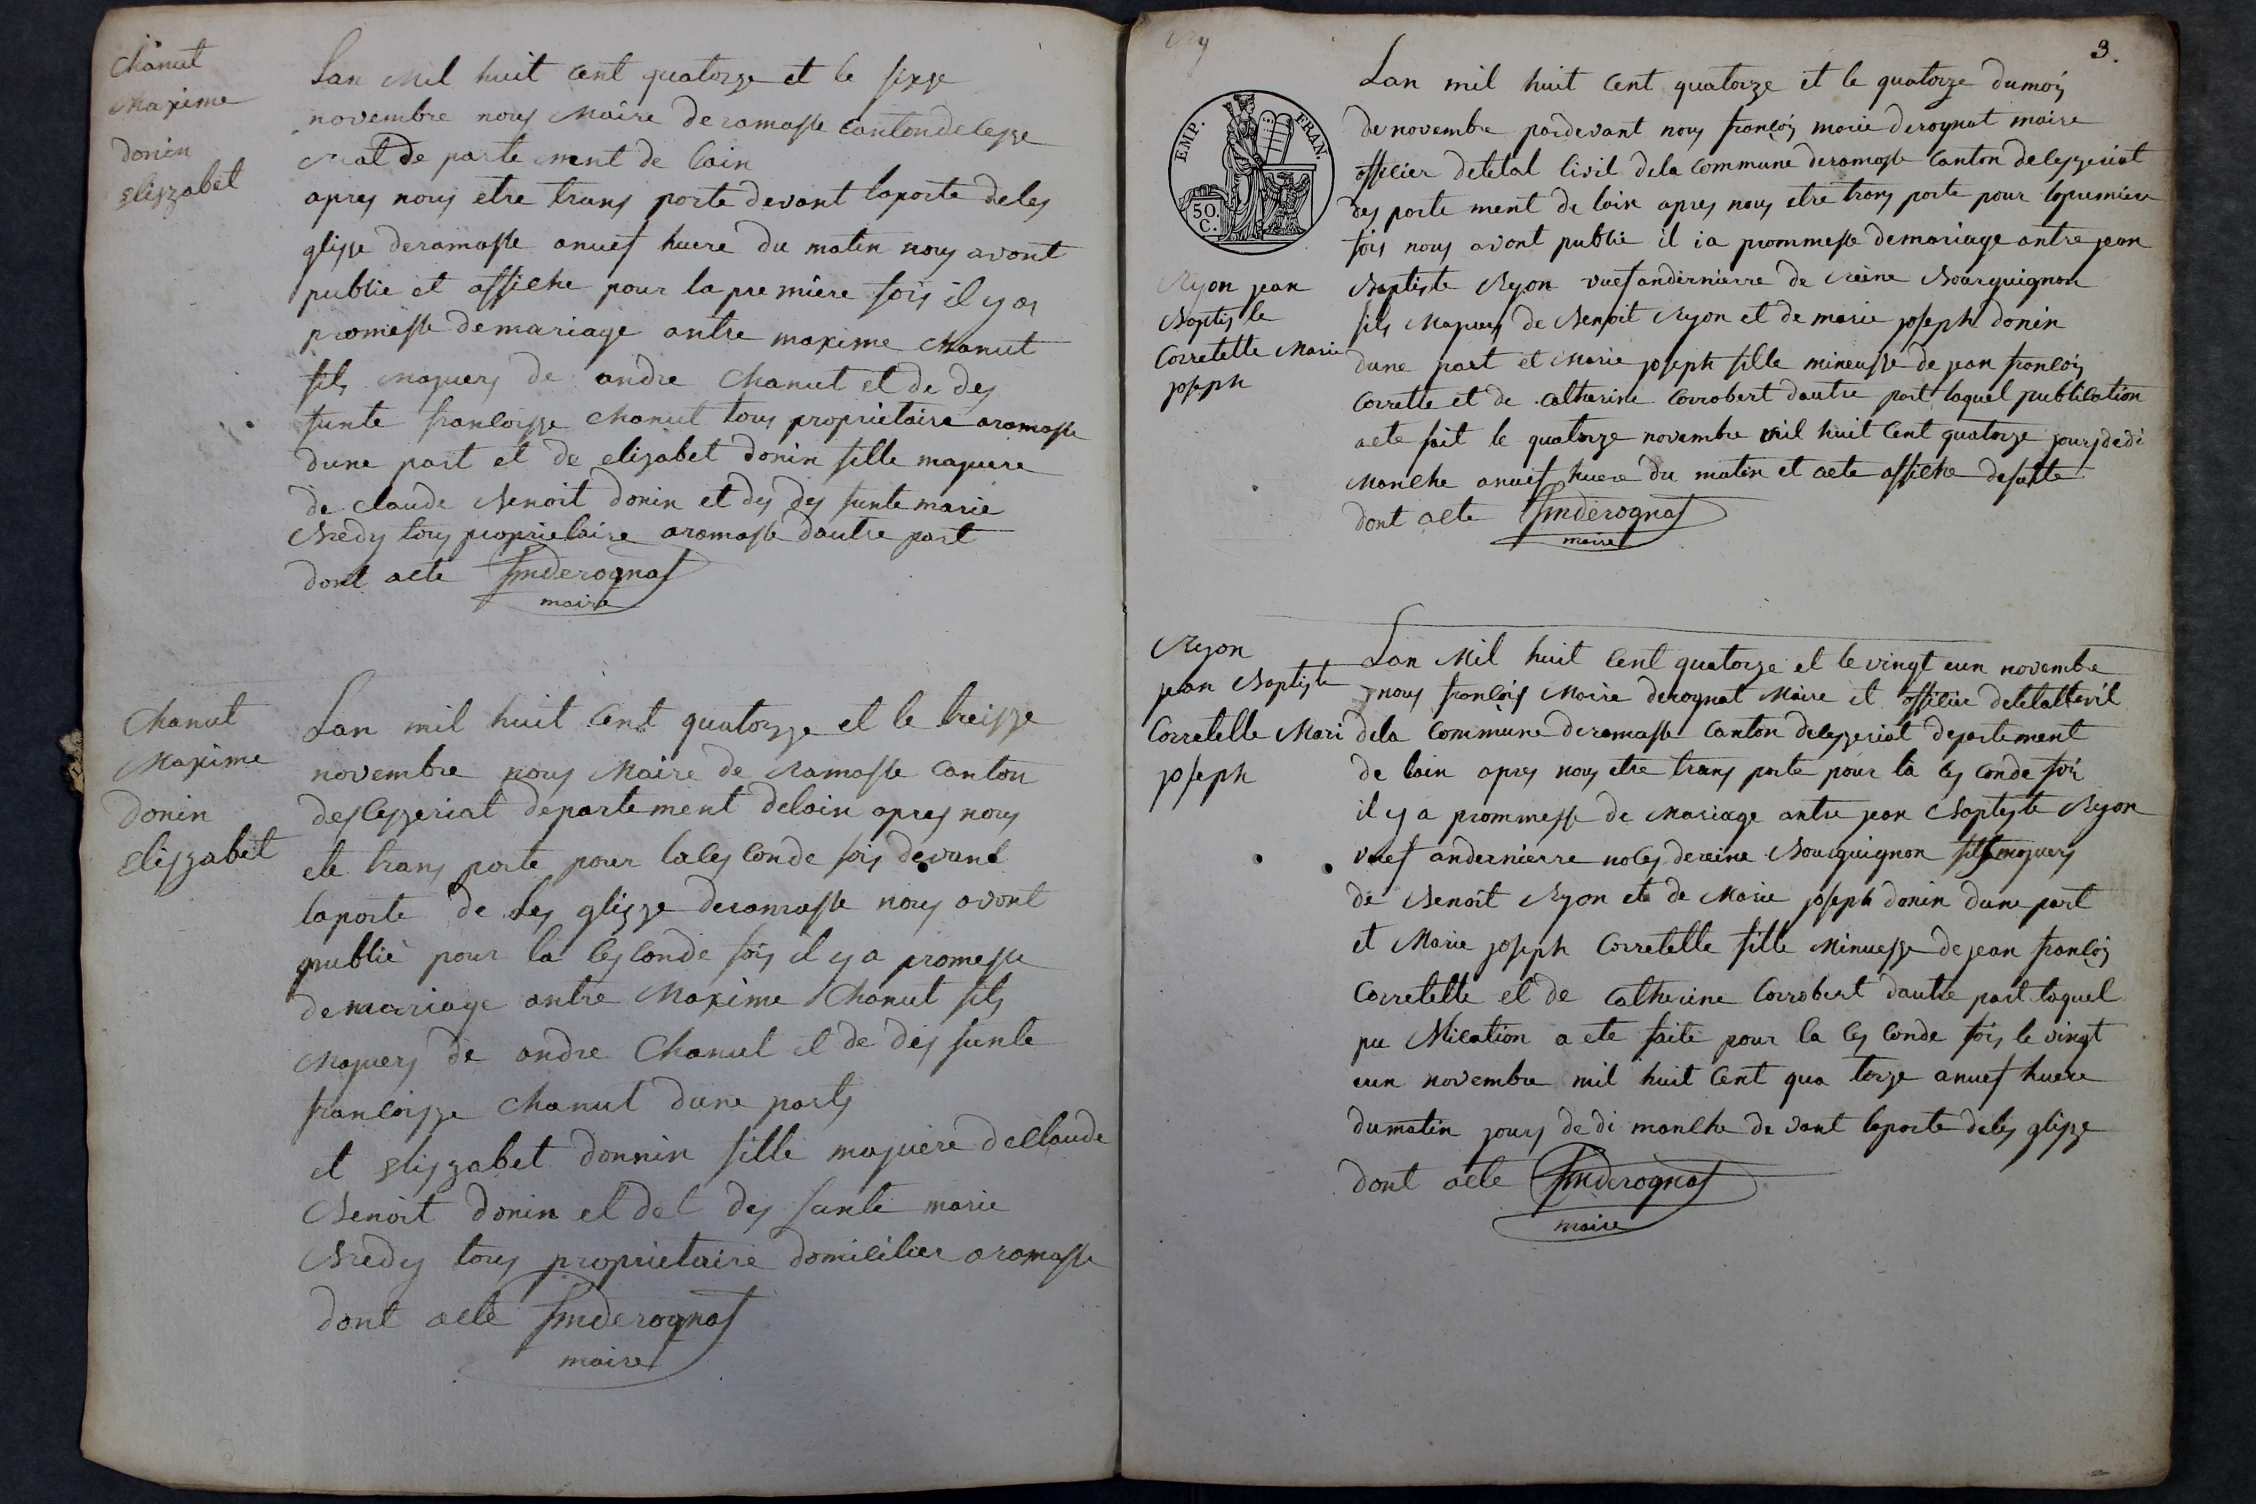 Chanut
Maxime
donin
Eliszabet
Lan Mil huit Cent quatorze et le sixse
novembre nous Maire de ramasse Cantondelesse
riat de parte ment de Lain
apres nous etre trans porte devant laporte deles
glisse deramasse anuef huere du matin nous avont
publie et affiche pour la premiere fois il y as
promesse demariage antre maxime chanut
fils majuers de andre Chanut et de des
funte francoisse chanut tous proprietaire aramasse
dune part et de elizabet donin fille majuere
de claude Benoit donin et des des funte marie
Bredy tous proprietaire aramasse dautre part
dont acte fmderognat
maire
Chanut
Maxime
donin
Eliszabet
Lan mil huit Cent quatorzse et le treisse
novembre nous Maire de Ramasse Canton
desCeszeriat departement delain apres nous
ete trans porte pour laces Conde fois devant
laporte de Les glisze deramasse nous avont
publié pour la ces Conde fois il y a promesse
demariage antre Maxime Chanut fils
Majuers de andre Chanut et de des funte
francoisze Chanut dune parts
et Eliszabet donnin fille majuere deClaude
Benoit donin et de des funte marie
Bredy tous proprietaire domicilier aramasse
dont acte fmderognat
maire
3.
EMP. FRAN.
50.
C.
Ryon jean
Baptis te
Corretelle Marie
joseph
Lan mil huit Cent quatorze et le quatorze dumois
denovembre pardevant nous francois marie derognat maire
officier detetat Civil dela Commune deramasse Canton deleszeriat
des parte ment de Lain apres nous etre trans porte pour lapremiere
fois nous avont publie il ia prommesse demariage antre jean
Baptiste Ryon vuef andernierre de Reine Bourguignon
fils Majuers de Benoit Ryon et de marie joseph donin
dune part et Marie joseph fille mineusse de jean francois
Corrette et de Catherine Corrobert dautre part laquel publication
aete fait le quatorze novembre mil huit Cent quatorze jours dedi
Manche anuef huere du matin et aete affiche desuitte
dont acte fmderognat
maire
Ryon
jean Baptiste
Corretelle Mari
joseph
Lan Mil huit Cent quatorze et le vingt eun novembre
nous francois Marie derognat Maire et officier detetat Civil
dela Commune deramasse Canton deleszeriat departement
de Lain apres nous etre trans porte pour la ces Conde fois
il y a prommesse de Mariage antre jean Baptiste Ryon
vuef andernierre noces dereine Bourguignon fils majuers
de Benoit Ryon et de Marie joseph donin dune part
et Marie joseph Corretelle fille Minuesse de jean francois
Corretelle et de Catherine Corrobert dautre part laquel
pu blication a ete faite pour la ces Conde fois le vingt
eun novembre mil huit Cent qua torze anuef huere
dumatin jours de di manche de vant laporte deles glisze
dont acte fmderognat
maire